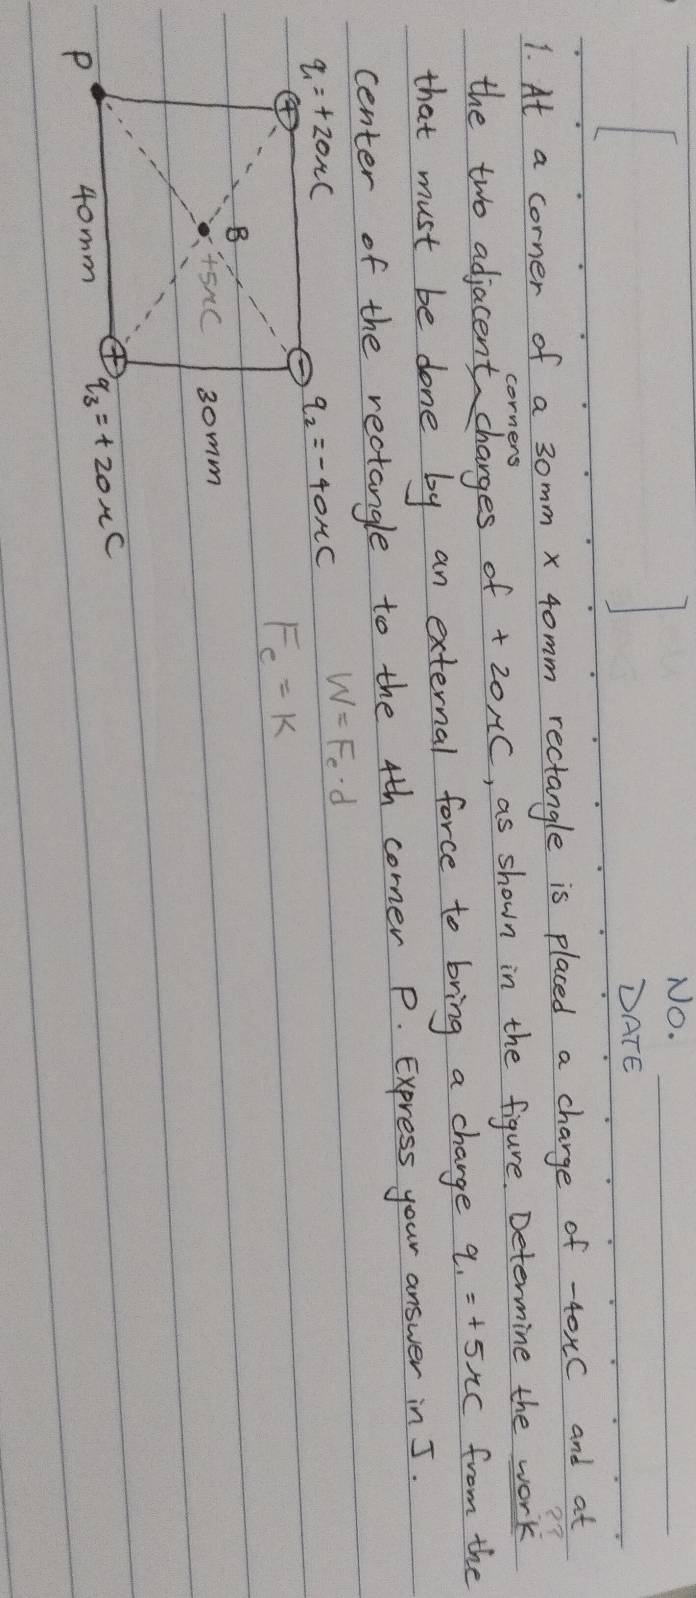 No.
DATE
1. At a corner of a 30mm x 40mm rectangle is placed a charge of -40μC and at
corners
the two adjacent charges of +20μC, as shown in the figure. Determine the work ??
that must be done by an external force to bring a charge q₁ = +5μC from the
center of the rectangle to the 4th corner P. Express your answer in J.
q₁ = +20μC
q₂ = -40μC
W = Fe · d
Fe = K
+
-
B
+5μC
30mm
P
40mm
+
q₃ = +20μC